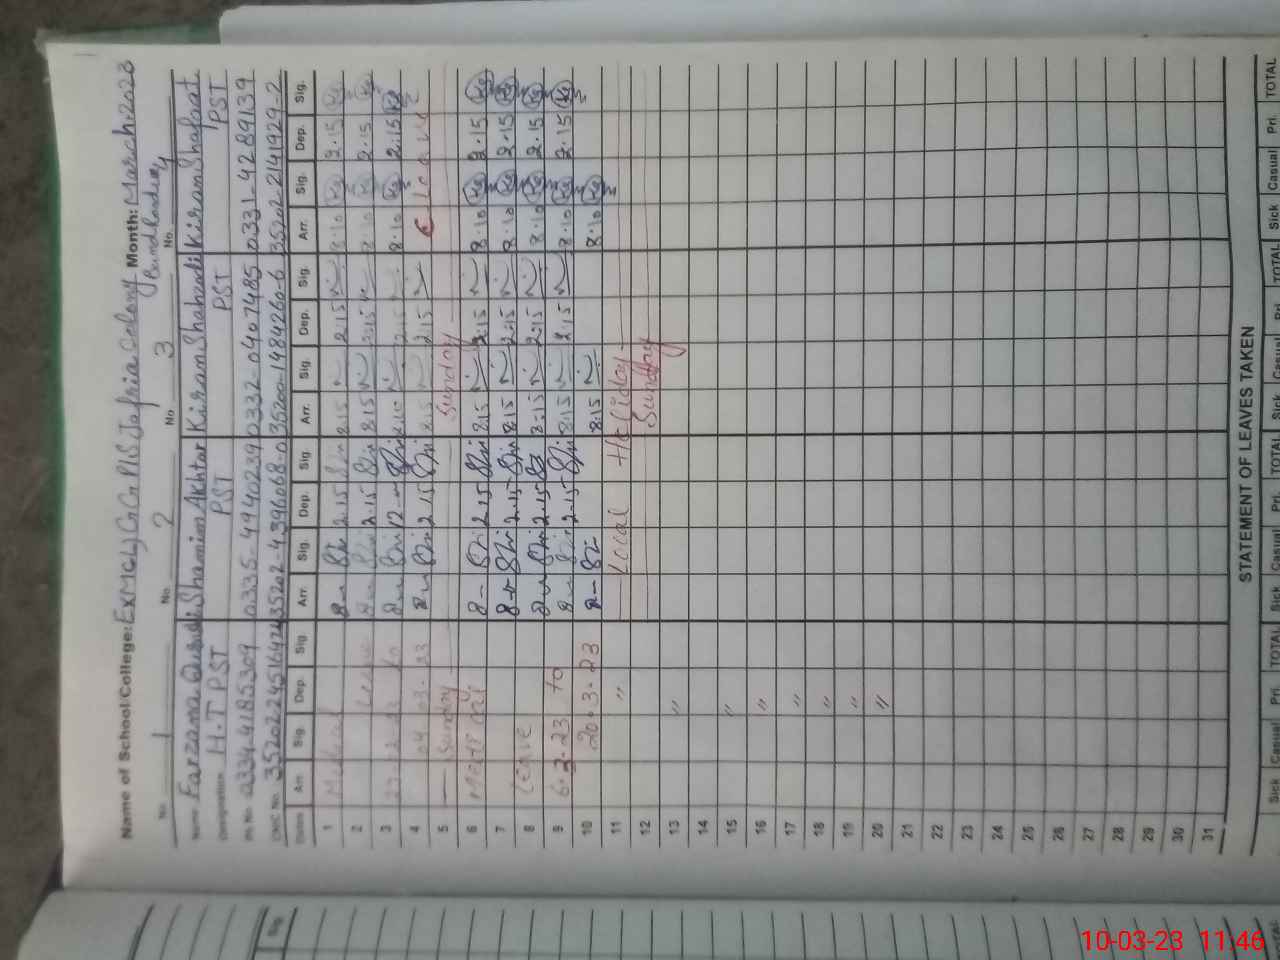 Name of School/College: Ex MCL) G.G. P/S Jafria Colony Month: March-2023
Bund Road
No. 1 No. 2 No. 3 No. 4
Name Farzana Shamim Akhtar Kiran Shahzadi Kiran Shafaat
Designation H.T PST PST PST PST
Ph. No. 03344185309 0335-4940239 0332-0407485 0331-4289139
CNIC No. 35202-4396068-0 35200-1484260-6 35202-2141929-2
Dates Arr. Sig. Dep. Sig. Arr. Sig. Dep. Sig. Arr. Sig. Dep. Sig. Arr. Sig. Dep. Sig.
1 Medical 8- 2.15 8.15 2.15 8.10 2.15
2 Leave 8- 2.15 8.15 2.15 8.10 2.15
3 to 8- 12- 8.15 2.15 8.10 2.15
4 04 03. 23 8- 2.15 8.15 2.15 C leave
5 Sunday Sunday
6 Medical 8- 2.15 8.15 2.15 8.10 2.15
7 8- 2.15 8.15 2.15 8.10 2.15
8 Leave 8- 2.15 8.15 2.15 8.10 2.15
9 6.3.23 to 8- 2.15 8.15 2.15 8.10 2.15
10 20.3.23 8- 8.15 8.10
11 " Local Holiday
12 Sunday
13 "
14
15 "
16 "
17 "
18 "
19 "
20 "
21
22
23
24
25
26
27
28
29
30
31
STATEMENT OF LEAVES TAKEN
Sick Casual Pri. TOTAL Sick Casual Pri. TOTAL Sick Casual Pri. TOTAL Sick Casual Pri. TOTAL
10-03-23 11:46